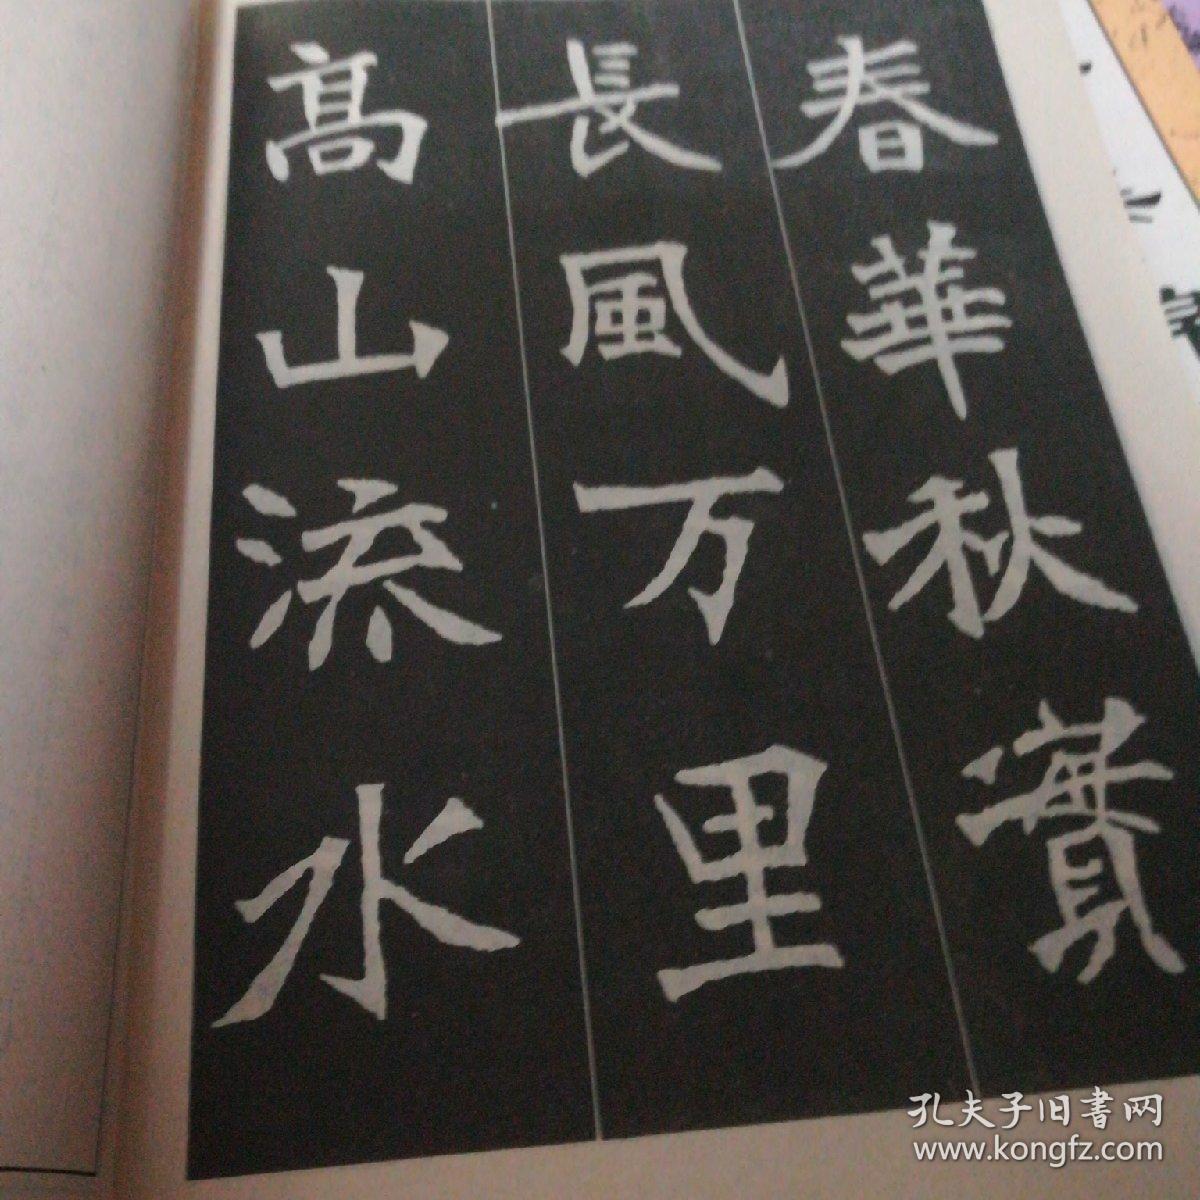 春華秋實
長風万里
高山流水
孔夫子旧書网
www.kongfz.com